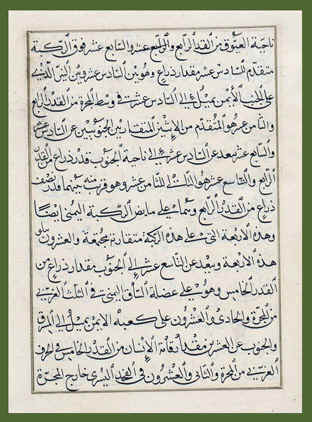 ناحية العيوق من القدر الرابع والرابع عشر والسابع عشر فوق الركبة
متقدم السادس عشر بمقدار ذراع وهو بين السادس عشر وبين النير الذي
على الجنب الأيمن ميل إلى السادس عشر في وسط المجرة من القدر الرابع
والثامن عشر هو المتقدم من الاثنين المتقاربين الجنوبيين عن السادس عشر
والسابع عشر بعد عن السادس عشر إلى ناحية الجنوب قدر ذراع من القدر
الرابع والتاسع عشر هو التالي للثامن عشر وهو قريب منه بينهما قدر نصف
ذراع من القدر الرابع وهما على مابض الركبة اليمنى ايضا
وهذه الاربعة التي على هذه الركبة متقاربة مجتمعة والعشرون يتلو
هذه الاربعة وبعد عن التاسع عشر إلى الجنوب بمقدار ذراع من
القدر الخامس وهو على عضلة الساق اليمنى في الثلث الغربي
من المجرة والحادي والعشرون على كعبه الايمن ميل إلى المرفق
والجنوب عن العشرين مقدار قامة الإنسان من القدر الخامس في الحرف
الغربي من المجرة والثاني والعشرون في الفخذ اليسرى خارج المجرة